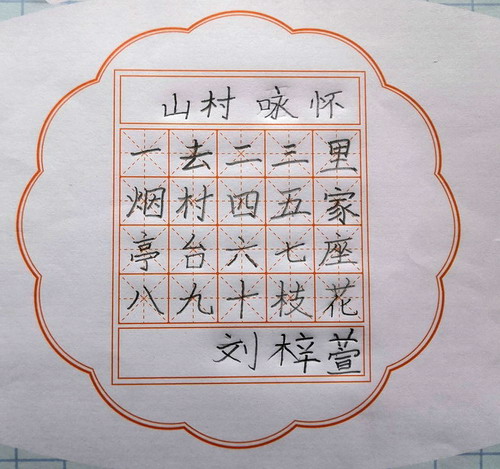 山村咏怀
一去二三里
烟村四五家
亭台六七座
八九十枝花
刘梓萱